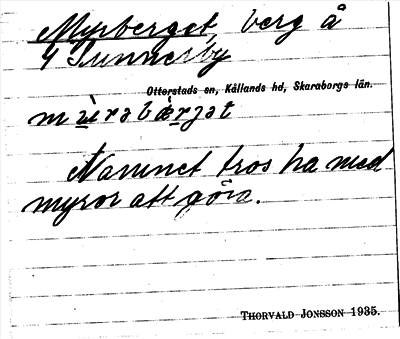 Myrberget, berg å
Y Sunnerby
Otterstads sn, Kållands hd, Skaraborgs län.
Namnet tros ha med
myror att göra.
THORVALD JONSSON 1935.